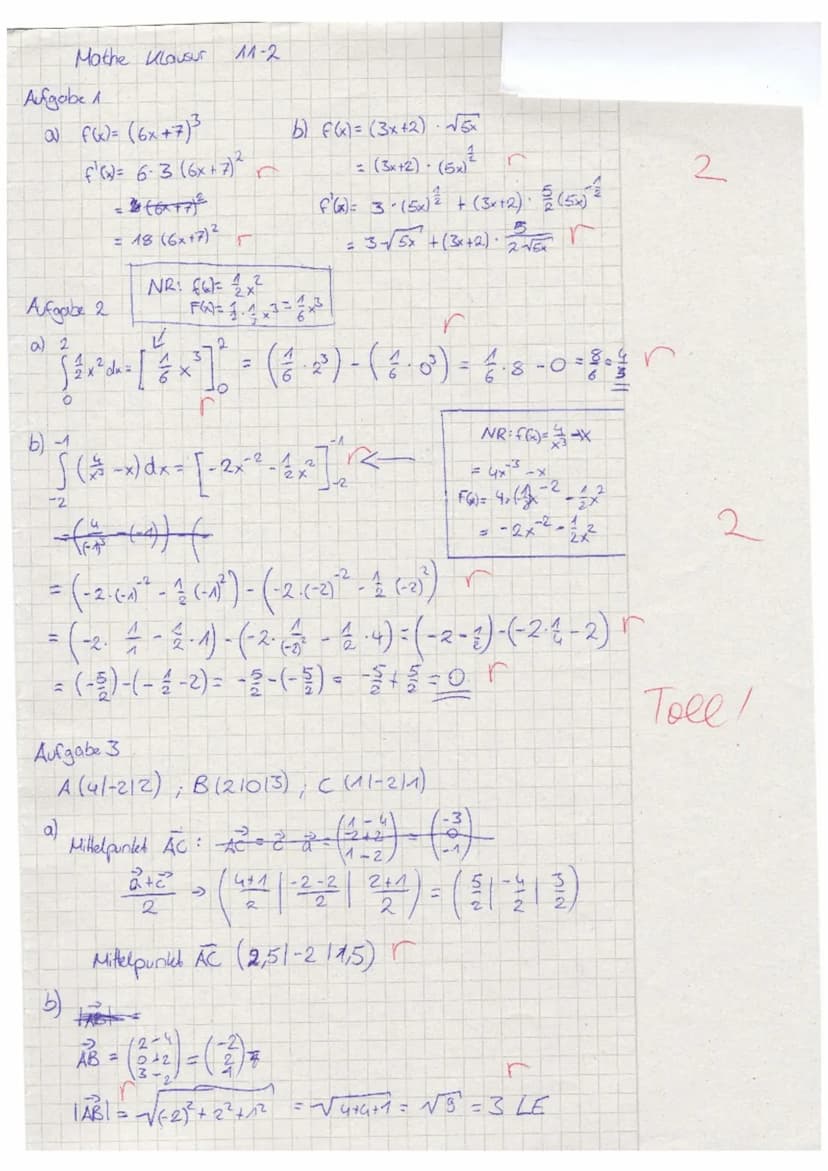 Mathe Klausur 11-2
Aufgabe 1
a) f(x) = (6x+7)³
f'(x) = 6·3 (6x+7)² r
= (6x+7)²
= 18 (6x+7)² r
b) f(x) = (3x+2) · √5x
= (3x+2) · (5x)^½ r
f'(x) = 3 · (5x)^½ + (3x+2) · 5/2 (5x)^-½
= 3√5x + (3x+2) · 5/(2√5x) r
2
Aufgabe 2
NR: f(x) = ½x²
F(x) = ½ · ⅓ x³ = 1/6 x³
a) ∫₀² ½x² dx = [1/6 x³]₀² = (1/6 · 2³) - (1/6 · 0³) = 1/6 · 8 - 0 = 8/6 = 4/3 r
r r
b) ∫₋₂⁻¹ (4/x³ - x) dx = [-2x⁻² - ½x²]₋₂⁻¹ r ←
NR: f(x) = 4/x³ - x
= 4x⁻³ - x
F(x) = 4·(-½)x⁻² - ½x²
= -2x⁻² - ½x²
= (4/(-1)³ - (-1)) - (
2
= (-2·(-1)⁻² - ½(-1)²) - (-2·(-2)⁻² - ½(-2)²) r
= (-2 · 1/1 - ½ · 1) - (-2 · 1/(-2)² - ½ · 4) = (-2 - ½) - (-2 · ¼ - 2) r
= (-5/2) - (-½ - 2) = -5/2 - (-5/2) = -5/2 + 5/2 = 0 r
Toll!
Aufgabe 3
A (4|-2|2) ; B (2|0|3) ; C (1|-2|1)
a) Mittelpunkt AC: AC = c - a = (1-4 / -2+2 / 1-2) = (-3 / 0 / -1)
(a+c)/2 → ((4+1)/2 | (-2-2)/2 | (2+1)/2) = (5/2 | -4/2 | 3/2)
Mittelpunkt AC (2,5|-2|1,5) r
b) |AB| =
AB = (2-4 / 0+2 / 3-2) = (-2 / 2 / 1)
|AB| = √(-2)² + 2² + 1² = √4+4+1 = √9 = 3 LE
r r